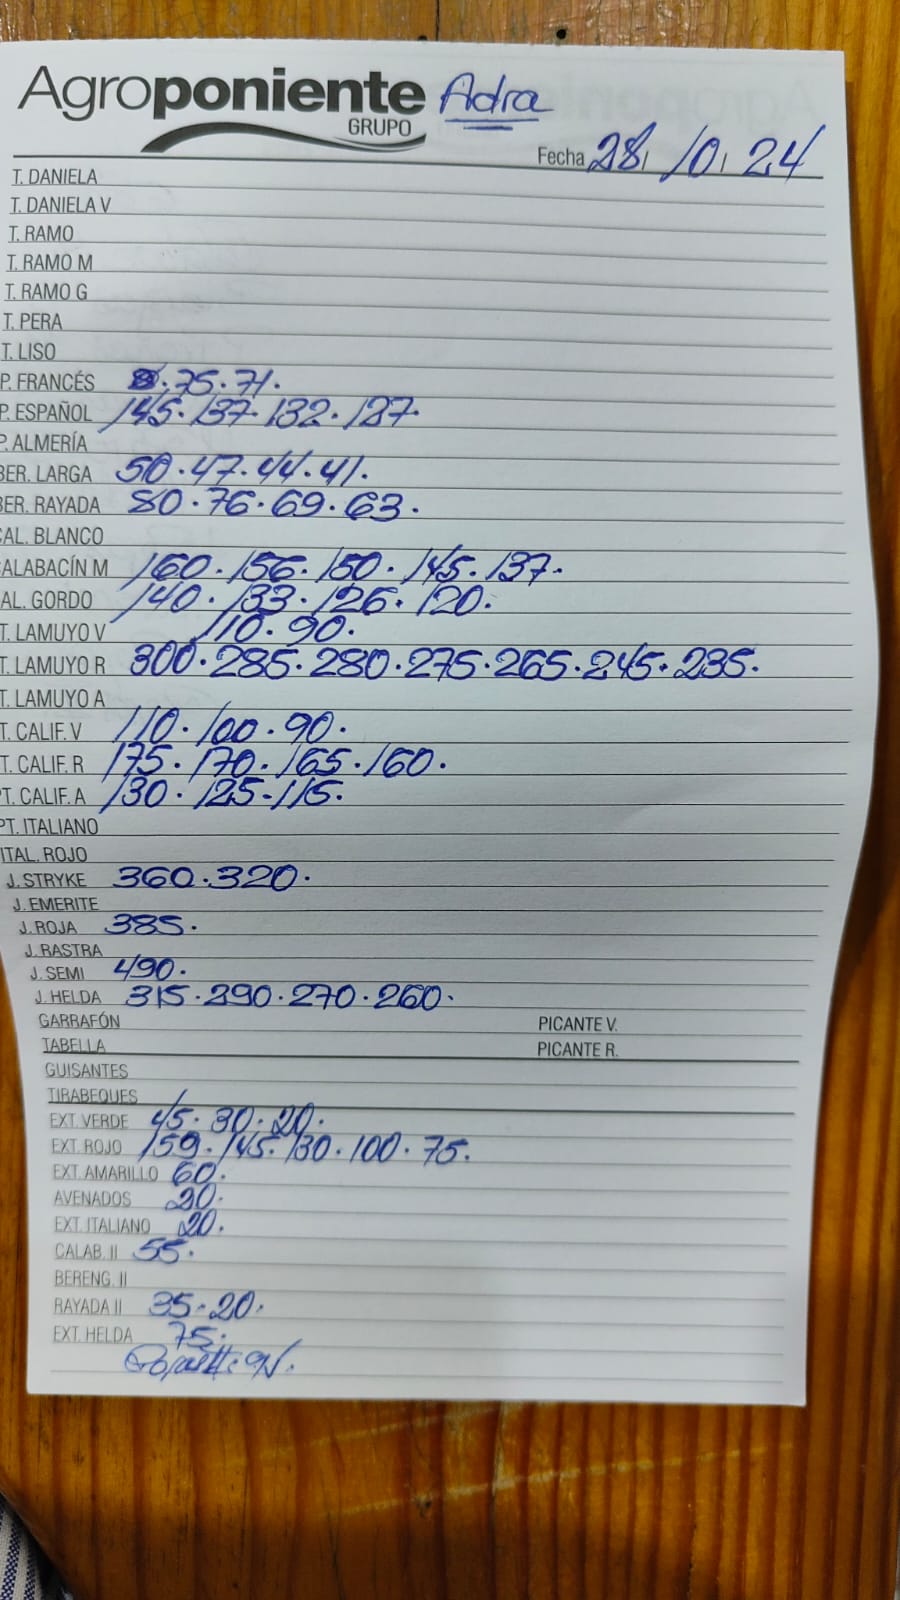 Agroponiente Adra
GRUPO
Fecha 28, 10, 24
T. DANIELA
T. DANIELA V
T. RAMO
T. RAMO M
T. RAMO G
T. PERA
T. LISO
P. FRANCÉS 75. 71.
P. ESPAÑOL 145. 137. 132. 127.
P. ALMERÍA
BER. LARGA 50. 47. 44. 41.
BER. RAYADA 80. 76. 69. 63.
CAL. BLANCO
CALABACÍN M 160. 156. 150. 145. 137.
AL. GORDO 140. 133. 126. 120.
T. LAMUYO V 110. 90.
T. LAMUYO R 300. 285. 280. 275. 265. 245. 235.
T. LAMUYO A
T. CALIF. V 110. 100. 90.
T. CALIF. R 175. 170. 165. 160.
PT. CALIF. A 130. 125. 115.
PT. ITALIANO
ITAL. ROJO
J. STRYKE 360. 320.
J. EMERITE
J. ROJA 385.
J. RASTRA
J. SEMI 490.
J. HELDA 315. 290. 270. 260.
GARRAFÓN PICANTE V.
TABELLA PICANTE R.
GUISANTES
TIRABEQUES
EXT. VERDE 45. 30. 20.
EXT. ROJO 159. 145. 130. 100. 75.
EXT. AMARILLO 60.
AVENADOS 20.
EXT. ITALIANO 20.
CALAB. II 55.
BERENG. II
RAYADA II 35. 20.
EXT. HELDA 75.